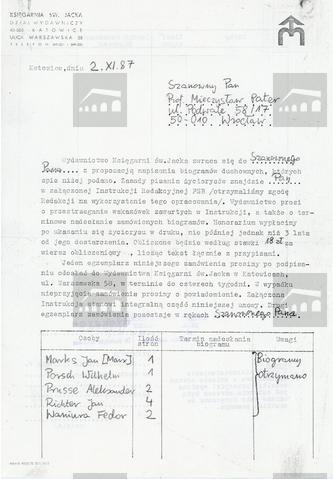 KSIĘGARNIA ŚW. JACKA
DZIAŁ WYDAWNICZY
KATOWICE
ULICA WARSZAWSKA 58
TELEFON
Katowice, dnia 2. XI. 87
Szanowny Pan
Prof. Mieczysław Pater
58/17
Wrocław
Wydawnictwo Księgarni św.Jacka zwraca się do Szanownego
Pana..... z propozycją napisania biogramów duchownych, których
spis niżej podano. Zasady pisania życiorysów znajdzie Pan
w załączonej Instrukcji Redakcyjnej PSB /otrzymaliśmy zgodę
Redakcji na wykorzystanie tego opracowania/. Wydawnictwo prosi
o przestrzeganie wskazówek zawartych w Instrukcji, a także o ter-
minowe nadesłanie zamówionych biogramów. Honorarium wypłacimy
po ukazaniu się życiorysu w druku, nie później jednak niż 3 lata
od jego dostarczenia. Obliczone będzie według stawki 18 zł za
wiersz obliczeniowy, licząc tekst łącznie z przypisami.
Jeden egzemplarz niniejszego zamówienia prosimy po podpisa-
niu odesłać do Wydawnictwa Księgarni św.Jacka w Katowicach,
ul. Warszawska 58, w terminie do czterech tygodni. W wypadku
nieprzyjęcia zamówienia prosimy o powiadomienie. Załączona
Instrukcja stanowi integralną część niniejszej umowy. Drugi
egzemplarz zamówienia pozostaje w rękach Szanownego Pana.
Osoby Ilość stron Termin nadesłania biogramu Uwagi
Marks Jan [Marx] 1 Biogramy
Porsch Wilhelm 1 otrzymano
Prusse Aleksander 2
Richter Jan 4
Waniura Fedor 2